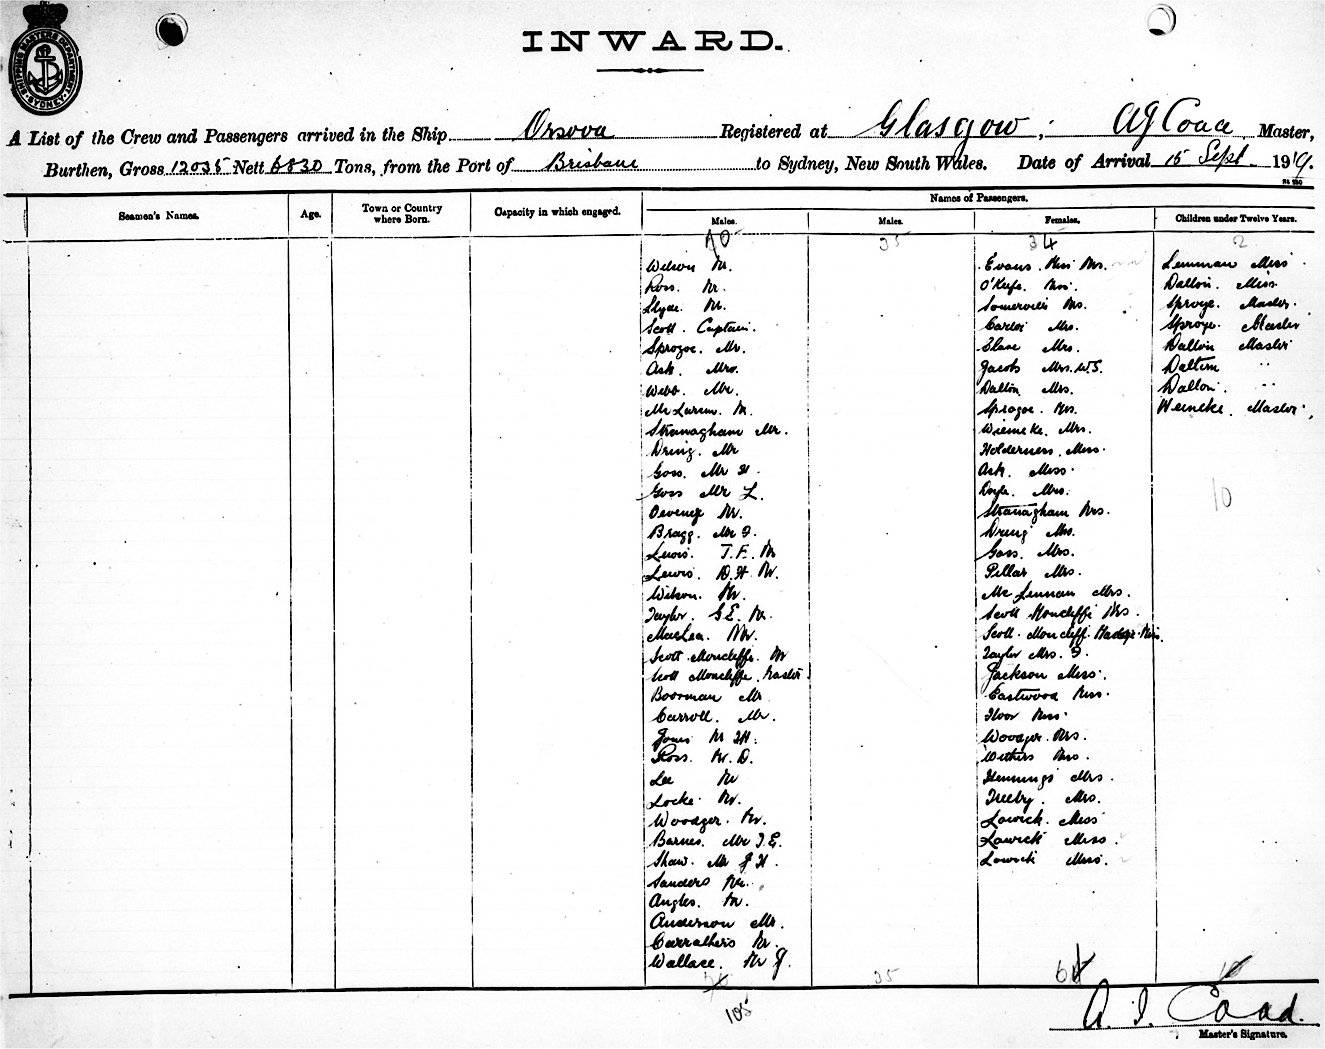 SHIPPING MASTERS DEPARTMENT
SYDNEY
INWARD.
A List of the Crew and Passengers arrived in the Ship Orsova Registered at Glasgow, Master,
Burthen, Gross 12035 Nett 6830 Tons, from the Port of Brisbane to Sydney, New South Wales. Date of Arrival 15 Sept 1919.
Seamen's Names. Age. Town or Country where Born. Capacity in which engaged. Names of Passengers.
Males. Males. Females. Children under Twelve Years.
70 35 34 2
Wilson Mr.
Ross. Mr.
Clyde Mr.
Scott. Captain.
Sprogoe. Mr.
Ash. Mrs.
Webb. Mr.
McLaren. M.
Stranagham Mr.
Dring. Mr
Goss. Mr H.
Goss Mr L.
Mr.
Bragg. Mr F.
Lewis. T. F. Mr
Lewis. D. H. Mr.
Wilson. Mr.
Taylor. G E. Mr.
MacLea. Mr.
Scott. Moncieffe. Mr
Scott Moncieffe. Master.
Boorman Mr
Carroll. Mr.
Jones Mr
Ross. Mr. D.
Lee Mr
Locke. Mr.
Woodger. Mr.
Barnes. Mr J. E.
Shaw. Mr J H.
Sanders Mr.
Angles. Mr.
Anderson Mr.
Carrathers Mr.
Wallace. Mr J.
Evans. Miss Mrs.
O'Keefe.
Somerville Mrs.
Carter Mrs.
Mrs.
Jacobs Mrs. W. S.
Dalton Mrs.
Sprogoe. Mrs.
Wieneke. Mrs.
Holderness. Miss.
Ash. Miss.
Doyle. Mrs.
Stranagham Mrs.
Dring Mrs.
Goss. Mrs.
Pillar Mrs.
McLennan Mrs.
Scott Moncieffe Mrs
Scott. Moncieff. Miss.
Taylor Mrs. F.
Jackson Miss.
Eastwood Miss.
Miss.
Woodger. Mrs.
Withers Miss.
Hemmings Mrs.
Treeby. Mrs.
Lowick. Miss
Lowick Miss.
Lowick Miss.
Lennman Miss
Dalton. Miss
Sprogoe. Master.
Sprogoe. Master
Dalton Master
Dalton "
Dalton. "
Weineke. Master.
10
35
105
A. J. Coad.
Master's Signature.